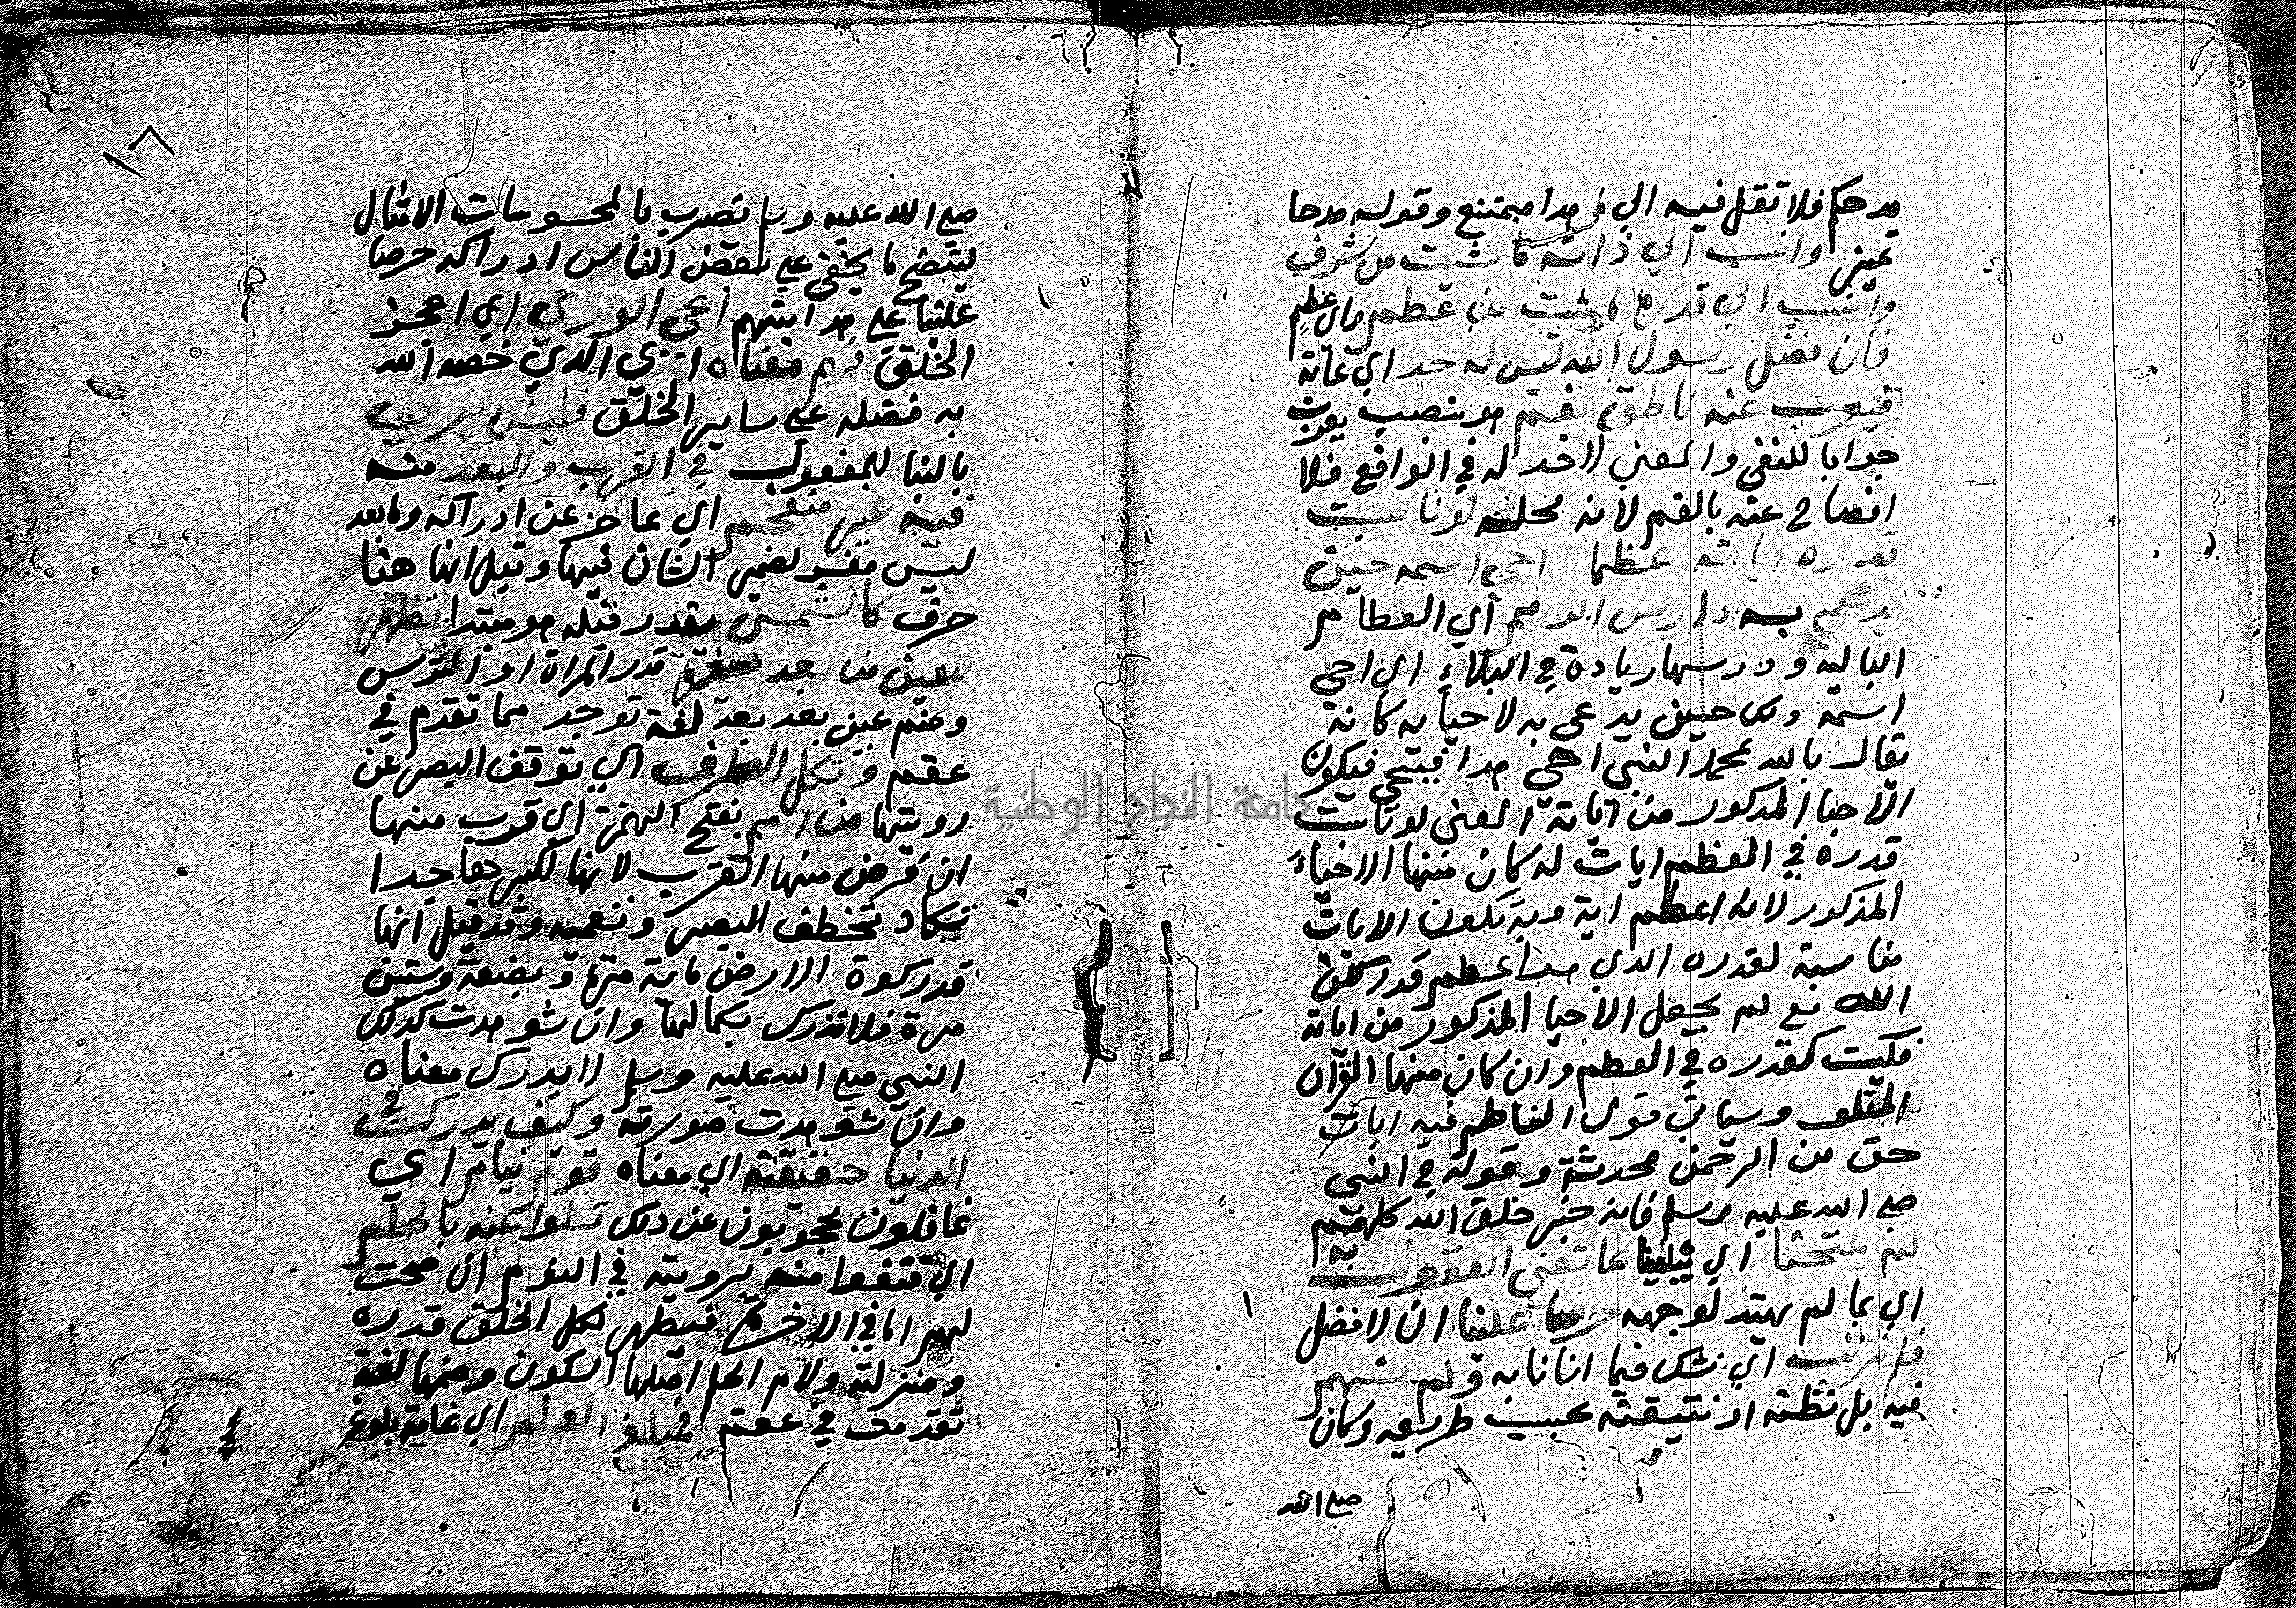 مدحكم فلا تقل فيه اي هدا ممتنع وقوله مدحا
يميني وانسب الي ذاته ما شيت من شرف
وانسب الي قدره ما شيت من عظم واي عظم
فان فضل رسول الله ليس له حد اي غاية
فيعرب عنه ناطق بفم هو بنصب يعرب
جوابا للنفي والمعني لا حد له في الواقع فلا
افصاح عنه بالفم لانه محله لو ناسبت
قدره اياته عظما احي اسمه حين
يدعي به دارس الرمم اي العظام
الباليه ودرسها زيادة في البلاء اي احي
اسمه وكل حين يدعي به لاحيا به كانه
يقال بالله بمحمد النبي احي هدا فيحي فيكون
الاحيا المذكور من اياته المعني لو ناسبت
قدره في العظم ايات له كان منها الاحياء
المذكور لانه اعظم اية وبه تكون الايات
مناسبة لقدره الدي هو اعظم قدر خلق
الله مع لم يجعل الاحيا المذكور من اياته
فليست كقدره في العظم وان كان منها القران
المتلو وسياتي قول الناظم فيه ايات
حق من الرحمن محدثة وقوله في النبي
صلي الله عليه وسلم فانه خير خلق الله كلهم
لم يمتحنا اي يبلينا بما تعيي العقول به
اي بما لم يهتد لوجهه حرصا علينا ان لا نضل
فلم نرتب اي نشك فيما اتانا به ولم نهم
فيه بل نظنه او نتيقنه بحسب طريقه وكان
صلي الله
١٦
صلي الله عليه وسلم يضرب بالمحسوسات الامثال
ليتضح ما يخفي علي بعض الناس ادراكه حرصا
علينا علي هدايتهم اعيي الوري اي اعجز
الخلق فهم معناه اي الدي خصه الله
به فضله علي ساير الخلق فليس يري
بالبنا للمفعول في القرب والبعد منه
فيه غير منفحم اي عاجز عن ادراكه وما بعد
ليس مفسر لضمير الشان فيها وقيل انها هنا
حرف كالشمس يقدر قبله هو مبتدا تظهر
للعين من بعد صغيرة قدر المراة او الترس
وضم عين بعد لغة توجد مما تقدم في
عقم وتكل الطرف اي توقف البصر عن
رويتها من امم بفتح الهمزة اي قرب منها
ان فرض منها القرب لانها لكبرها جدا
تكاد تخطف البصر وتعميه وقد قيل انها
قدر كرة الارض ماية مرة وبضعة وستين
مرة فلا تدرك بكمالها وان شوهدت كدلك
النبي صلي الله عليه وسلم لا يدرك معناه
وان شوهدت صورته وكيف يدرك في
الدنيا حقيقته اي معناه قوم نيام اي
غافلون محجوبون عن دلك تسلوا عنه بالحلم
اي قنعوا منه برويته في النوم ان صحت
لهم اما في الاخرة فيظهر لكل الخلق قدره
ومنزلته ولام الحلم اصلها السكون وضمها لغة
تقدمت في عقم فمبلغ العلم اي غاية بلوغ
جامعة النجاح الوطنية